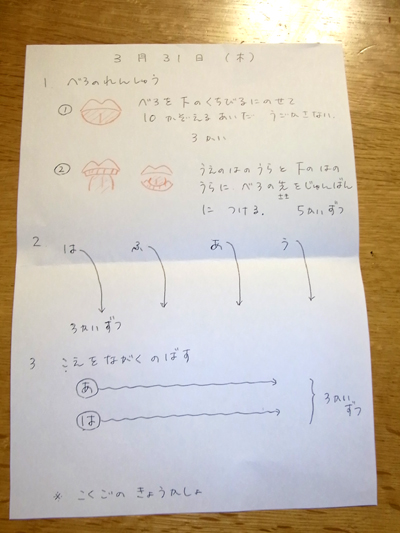 3月31日 (木)
1 べろのれんしゅう
① べろを下のくちびるにのせて
10 かぞえるあいだ うごかさない.
3かい
② うえのはのうらと下のはの
うらに べろの先をじゅんばん
に つける. 5かいずつ
2 は ふ あ う
3かいずつ
3 こえをながくのばす
あ
は
3かいずつ
※ こくごの きょうかしょ